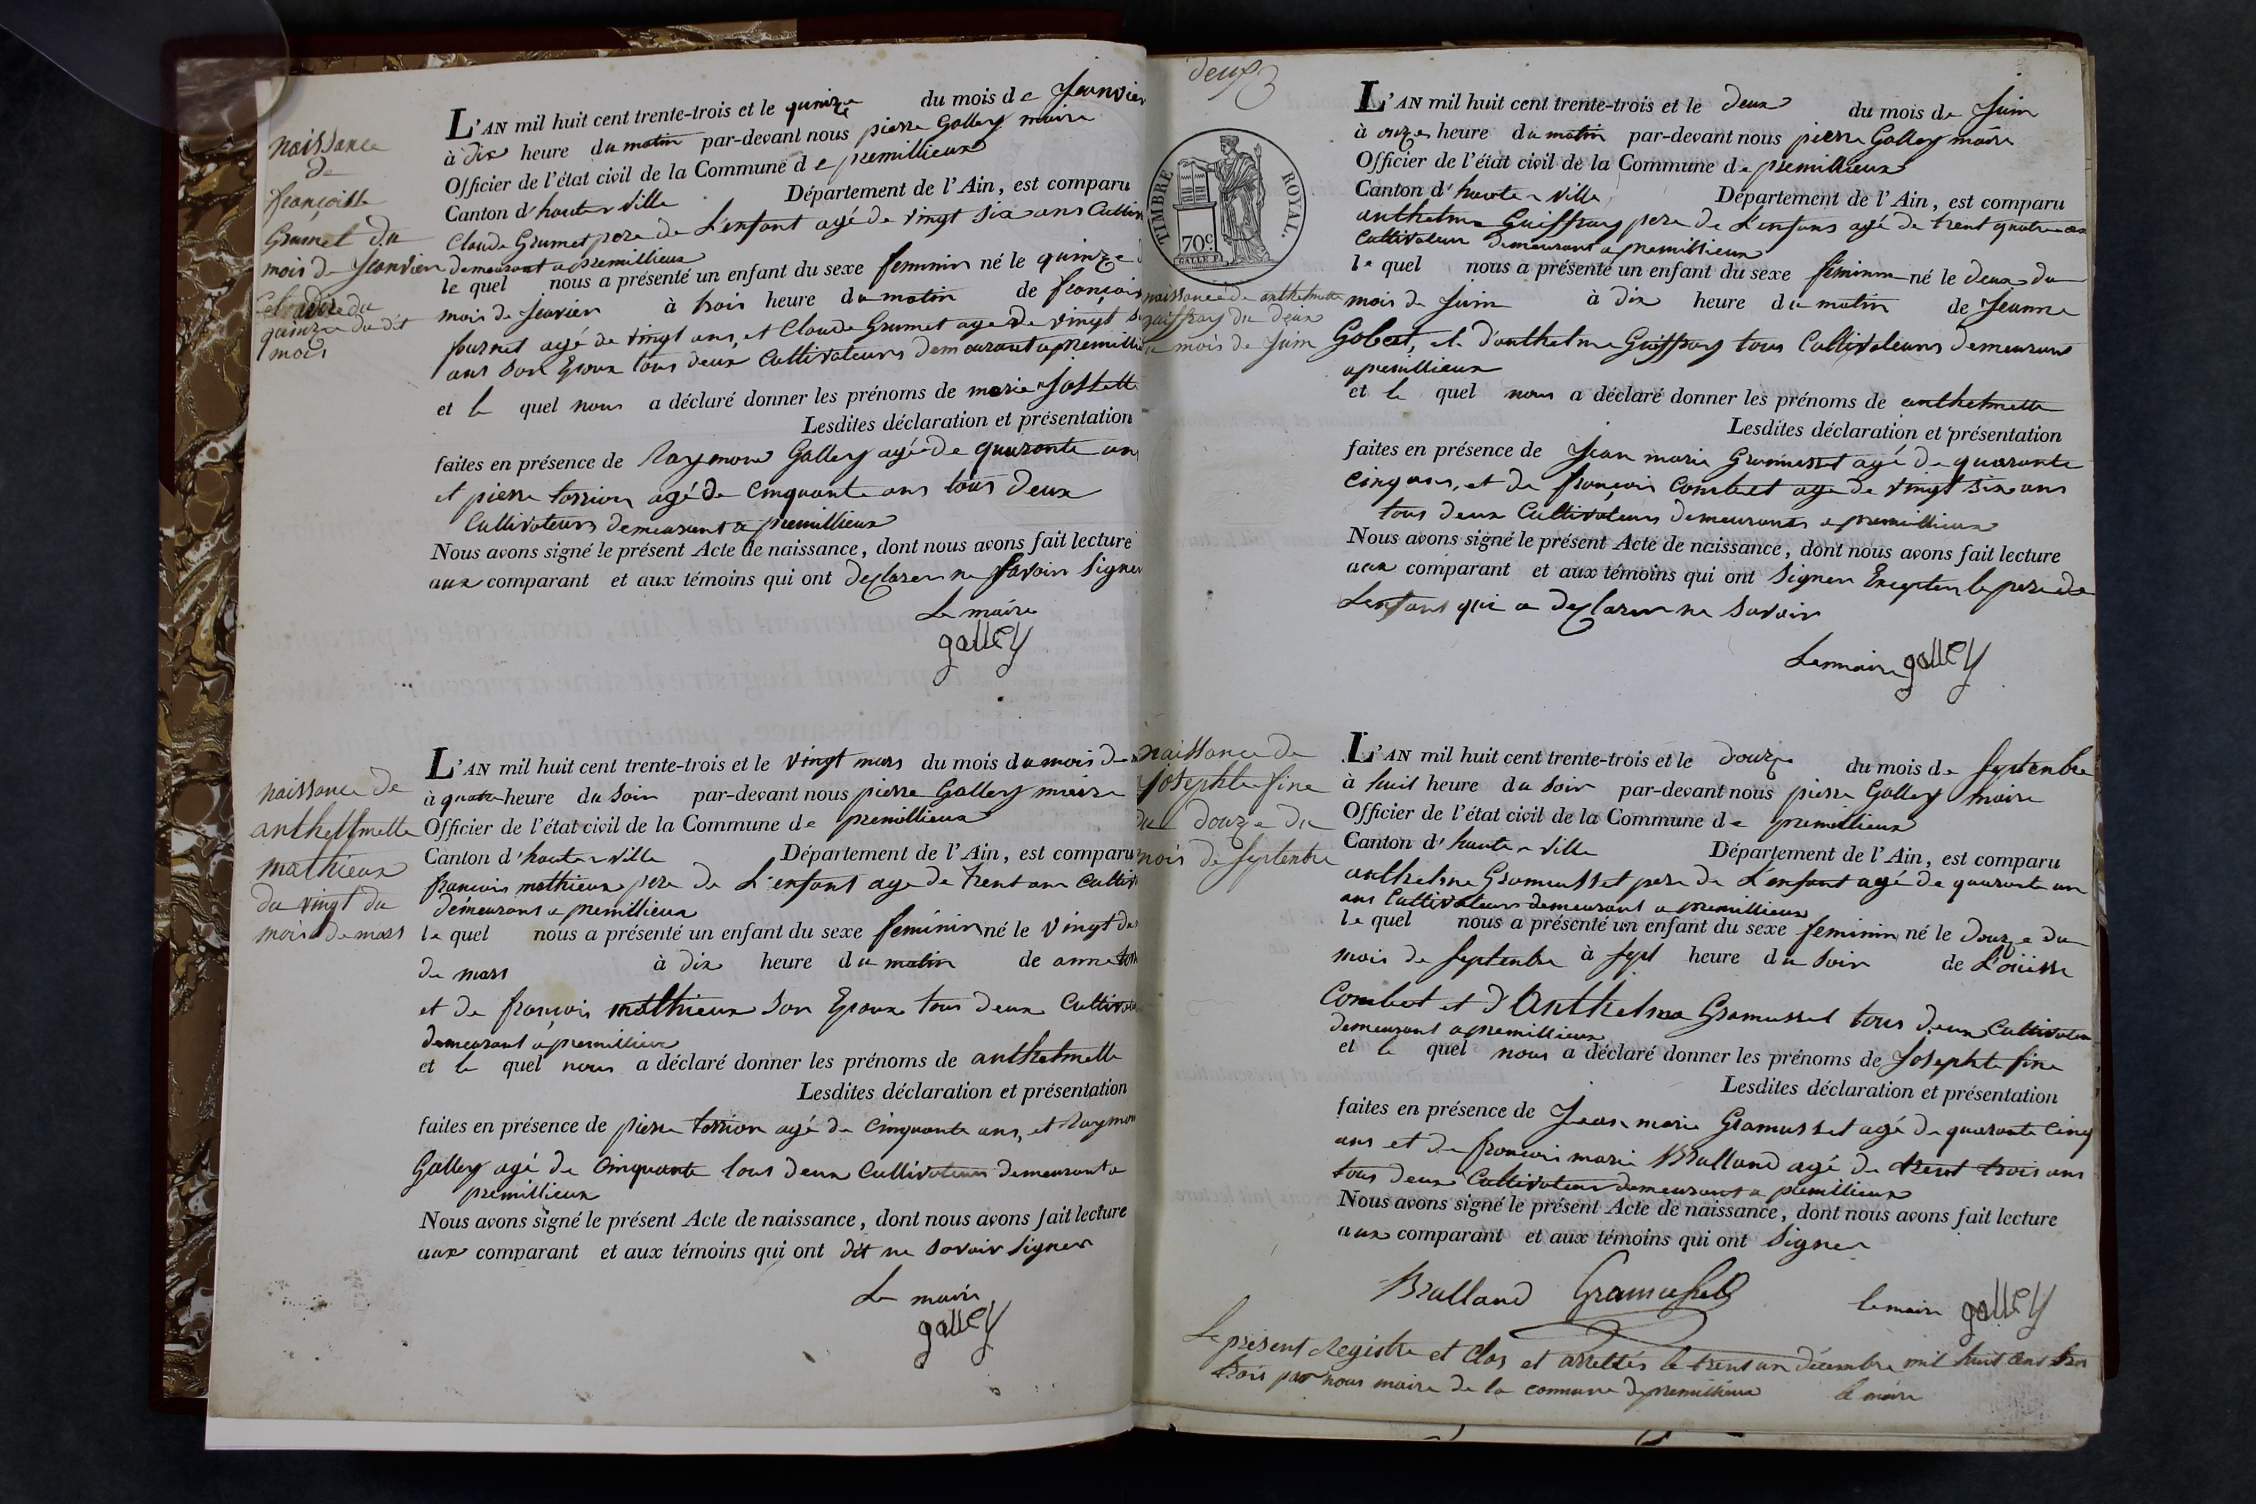 naissance
de
françoisse
Grumet du
mois de Janvier
quinze du dit
mois
L'AN mil huit cent trente-trois et le quinze du mois de Janvier
à dix heure du matin par-devant nous pierre Galley maire
Officier de l'état civil de la Commune de premillieux
Canton d'hauteville Département de l'Ain, est comparu
Claude Grumet pere de L'enfant agé de vingt six ans Cultiv
demeurant a premillieux
le quel nous a présenté un enfant du sexe feminin né le quinze
mois de Jeanvier à trois heure du matin de françois
agé de vingt ans, et Claude Grumet age de vingt
ans son Epoux tous deux Cultivateurs demeurant a premilli
et le quel nous a déclaré donner les prénoms de marie Jossette
Lesdites déclaration et présentation
faites en présence de Raymond Galley agé de quaronte an
et pierre torrion agé de Cinquante ans tous deux
Cultivateurs demeurant a premillieux
Nous avons signé le présent Acte de naissance, dont nous avons fait lecture
aux comparant et aux témoins qui ont declarer ne savoir signer
Le maire
galley
naissance de
anthelmette
mathieux
du vingt du
mois de mars
L'AN mil huit cent trente-trois et le vingt mars du mois du mois de
à quatre heure du soir par-devant nous pierre Galley maire
Officier de l'état civil de la Commune de premillieux
Canton d'hauteville Département de l'Ain, est comparu
francois mathieux pere de L'enfant age de trent ans Cultiv
demeurant a premillieux
le quel nous a présenté un enfant du sexe feminin né le vingt de
de mars à dix heure du matin de anne
et de françois mathieux son Epoux tous deux Cultivat
demeurant a premillieux
et le quel nous a déclaré donner les prénoms de anthelmette
Lesdites déclaration et présentation
faites en présence de pierre torrion agé de Cinquante ans, et Raymon
Galley agé de Cinquante tous deux Cultivateurs demeurant a
premillieux
Nous avons signé le présent Acte de naissance, dont nous avons fait lecture
aux comparant et aux témoins qui ont dit ne savoir signer
Le maire
galley
deux
TIMBRE ROYAL.
70c.
naissance de anthelmette
guiffray du deux
mois de Juin
L'AN mil huit cent trente-trois et le deux du mois de Juin
à onze heure du matin par-devant nous pierre Galley maire
Officier de l'état civil de la Commune de premillieux
Canton d'hauteville Département de l'Ain, est comparu
anthelme Guiffray pere de L'enfans agé de trent quatre ans
Cultivateur demeurant a premillieux
le quel nous a présenté un enfant du sexe féminin né le deux du
mois de Juin à dix heure du matin de Jeanne
Gobert, et d'anthelme Guiffray tous Cultivateurs demeurans
a premillieux
et le quel nous a déclaré donner les prénoms de anthelmette
Lesdites déclaration et présentation
faites en présence de Jean marie Gramusset agé de quaronte
Cinq ans, et de françois Combet age de vingt six ans
tous deux Cultivateurs demeurants a premillieux
Nous avons signé le présent Acte de naissance, dont nous avons fait lecture
aux comparant et aux témoins qui ont signer Excepter le pere de
Lenfans qui a declarer ne savoir
Le maire galley
naissance de
Josephte fine
du douze du
mois de septenbre
L'AN mil huit cent trente-trois et le douze du mois de Septenbre
à huit heure du soir par-devant nous pierre Galley maire
Officier de l'état civil de la Commune de premillieux
Canton d'hauteville Département de l'Ain, est comparu
anthelme Gramusset pere de L'enfant agé de quaronte un
ans Cultivateurs demeurant a premillieux
le quel nous a présenté un enfant du sexe feminin né le douze du
mois de Septenbre à sept heure du soir de L'ouisse
Combet et d'Anthelme Gramusset tous deux Cultivateu
demeurant a premillieux
et le quel nous a déclaré donner les prénoms de Josephte fine
Lesdites déclaration et présentation
faites en présence de Jean marie Gramusset agé de quaronte Cinq
ans et de francois marie Bralland agé de trent trois ans
tous deux Cultivateur demeurant a premillieux
Nous avons signé le présent Acte de naissance, dont nous avons fait lecture
aux comparant et aux témoins qui ont signer
Bralland Gramusset le maire galley
Le présent Registre et clos et arrettés le trent un décembre mil huit cent tren
trois par nous maire de la commune de premillieux le maire